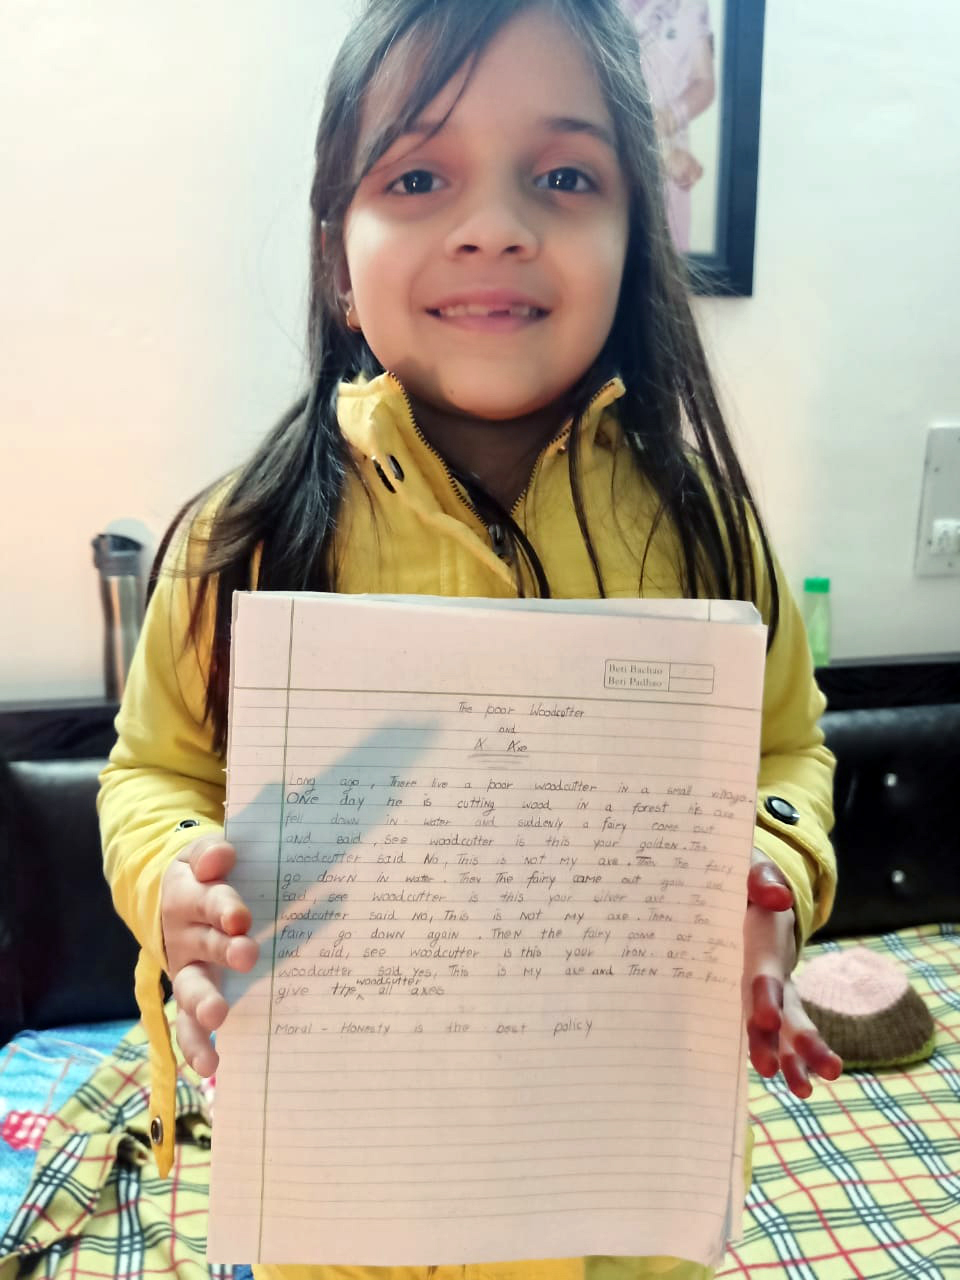 Beti Bachao
Beti Padhao
The poor Woodcutter
and
A Axe
Long ago, There live a poor woodcutter in a small village.
One day he is cutting wood in a forest his axe
fell down in water and suddenly a fairy come out
and said, see woodcutter is this your golden. The
woodcutter said No, This is Not My axe. Then The fairy
go down in water. Then The fairy came out again and
said, see woodcutter is this your silver axe. The
woodcutter said No, This is Not My axe. Then The
fairy go down again. Then the fairy come out again
and said, see woodcutter is this your iron axe. The
woodcutter said yes, This is My axe and Then The fairy
give the woodcutter all axes
Moral - Honesty is the best policy